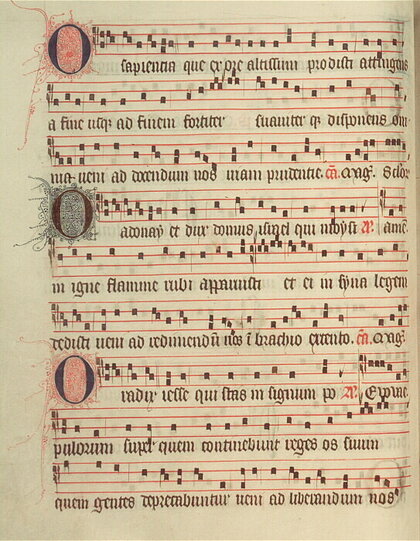 O sapientia que ex ore altissimi prodisti attingens
a fine usq; ad finem fortiter suaviter q; disponens om
nia veni ad docendum nos viam prudentie. cā. Mag.
O adonay et dux domus israel qui
in igne flamme rubi apparuisti et ei in syna legem
dedisti veni ad redimendū nos ī brachio extento. cā. Mag.
O radix iesse qui stas in signum po
pulorum super quem continebunt reges os suum
quem gentes deprecabuntur veni ad liberandum nos